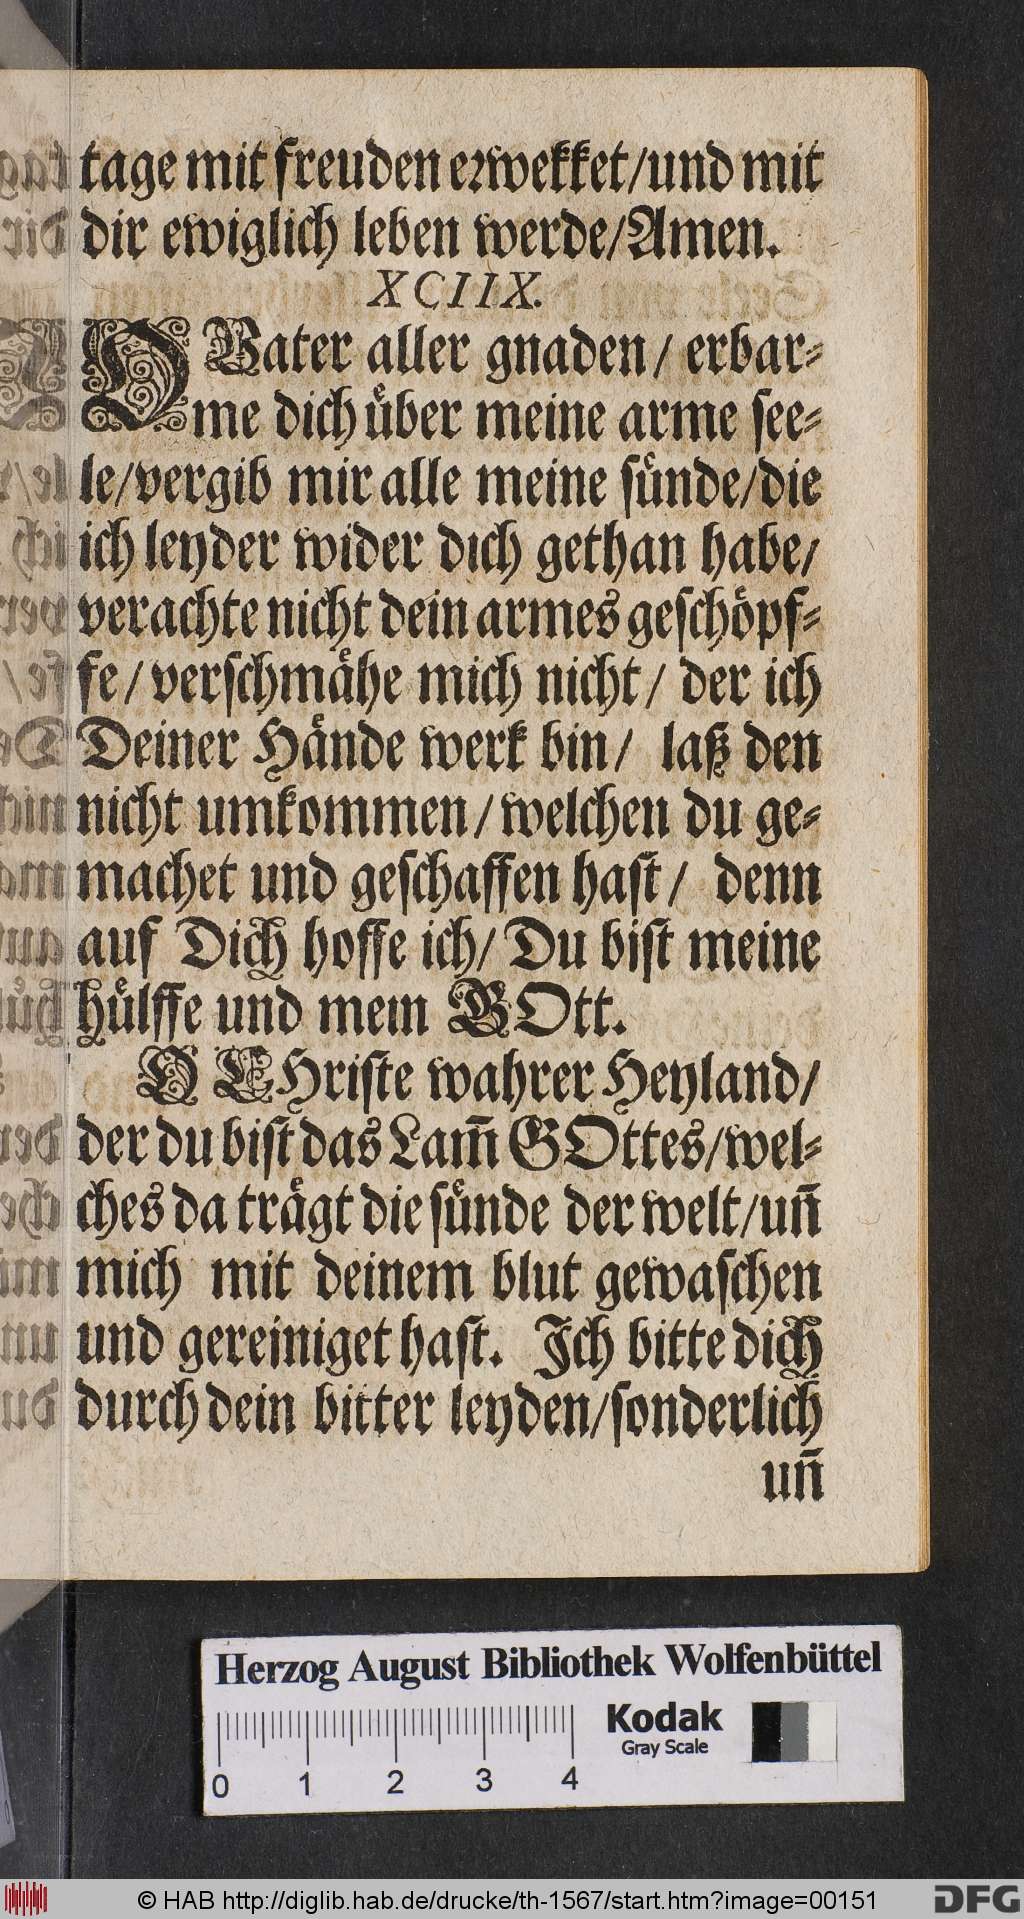 tage mit freuden erwekket/und mit
dir ewiglich leben werde/Amen.
XCIIX.
O Vater aller gnaden/ erbar-
me dich uͤber meine arme see-
le/vergib mir alle meine suͤnde/die
ich leyder wider dich gethan habe/
verachte nicht dein armes geschoͤpf-
fe/verschmaͤhe mich nicht/ der ich
Deiner Haͤnde werk bin/ laß den
nicht umkommen/welchen du ge-
machet und geschaffen hast/ denn
auf Dich hoffe ich/ Du bist meine
huͤlffe und mein GOtt.
O CHriste wahrer Heyland/
der du bist das Lam̄ GOttes/wel-
ches da traͤgt die suͤnde der welt/un̄
mich mit deinem blut gewaschen
und gereiniget hast. Ich bitte dich
durch dein bitter leyden/sonderlich
un̄
Herzog August Bibliothek Wolfenbüttel
Kodak
Gray Scale
0 1 2 3 4
© HAB http://diglib.hab.de/drucke/th-1567/start.htm?image=00151
DFG